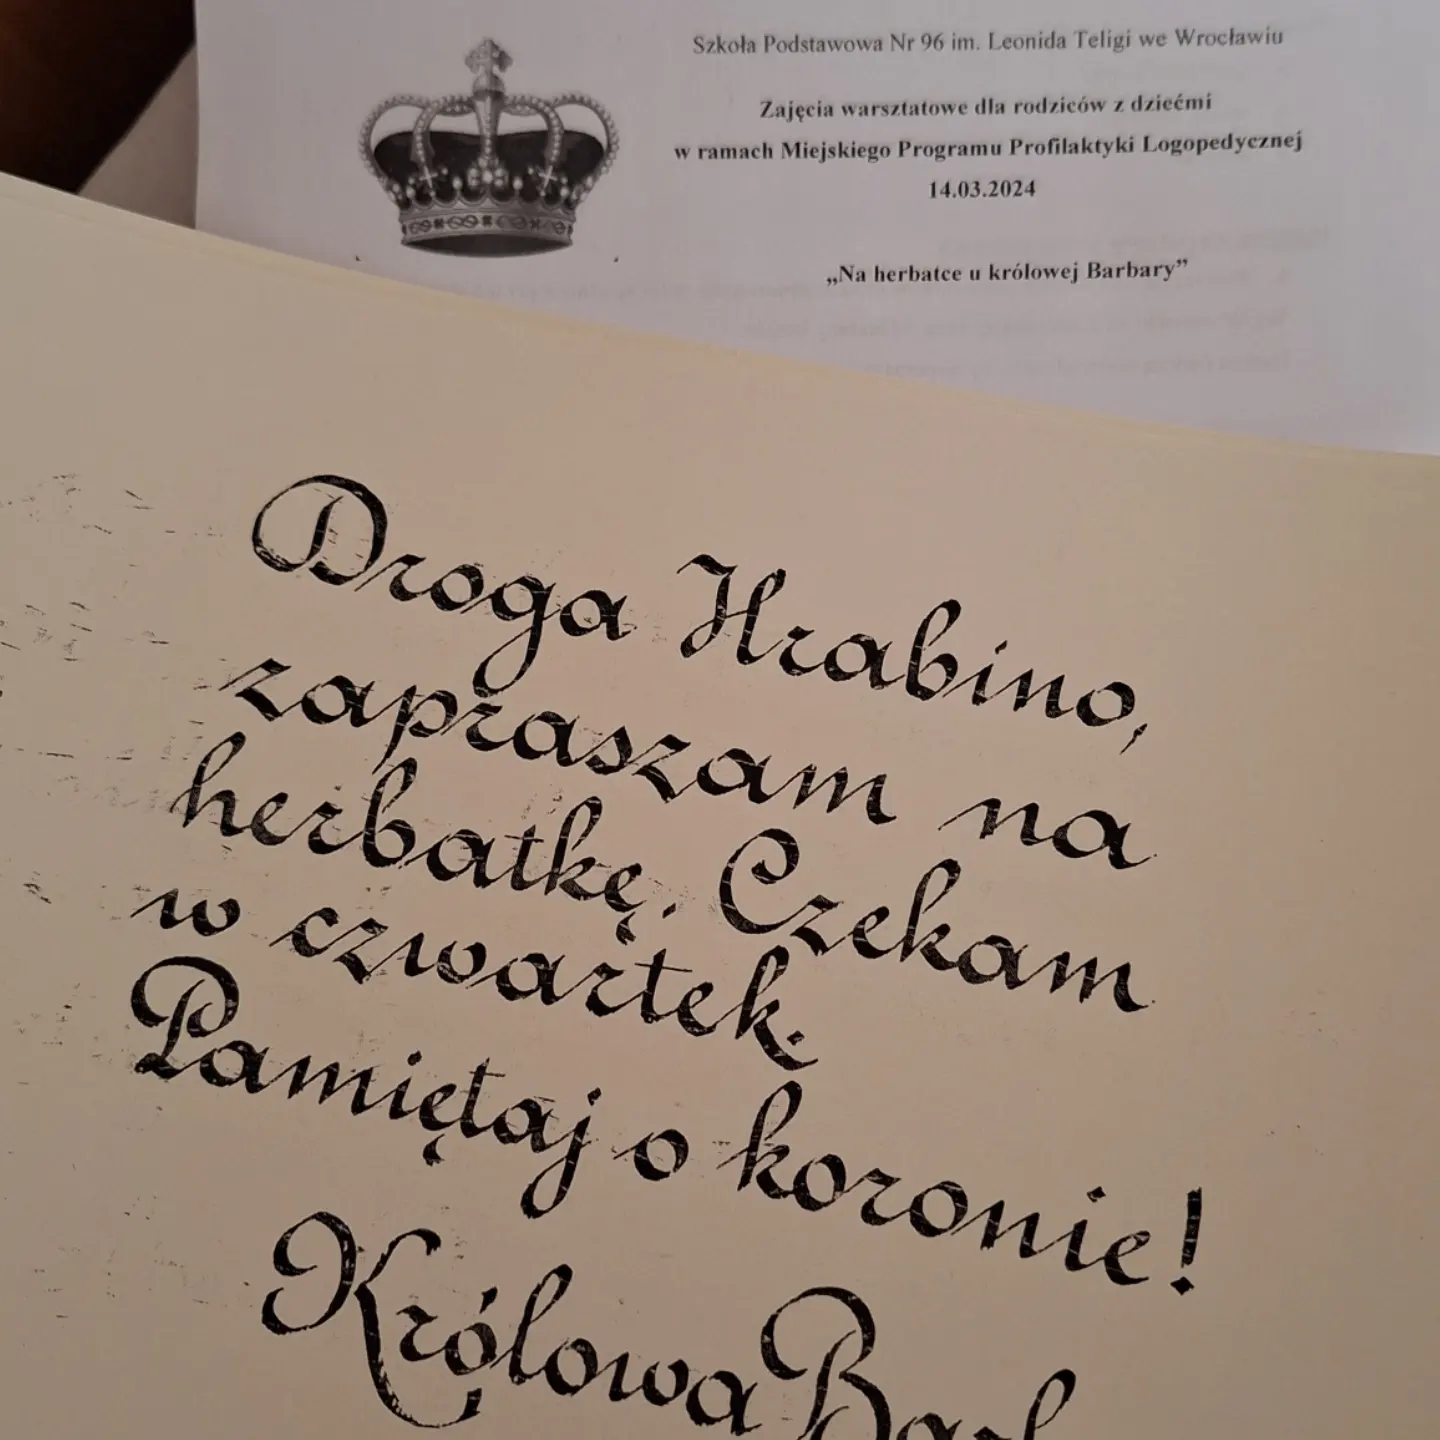 Szkoła Podstawowa Nr 96 im. Leonida Teligi we Wrocławiu
Zajęcia warsztatowe dla rodziców z dziećmi
w ramach Miejskiego Programu Profilaktyki Logopedycznej
14.03.2024
„Na herbatce u królowej Barbary”
Droga Hrabino,
zapraszam na
herbatkę. Czekam
w czwartek.
Pamiętaj o koronie!
Królowa